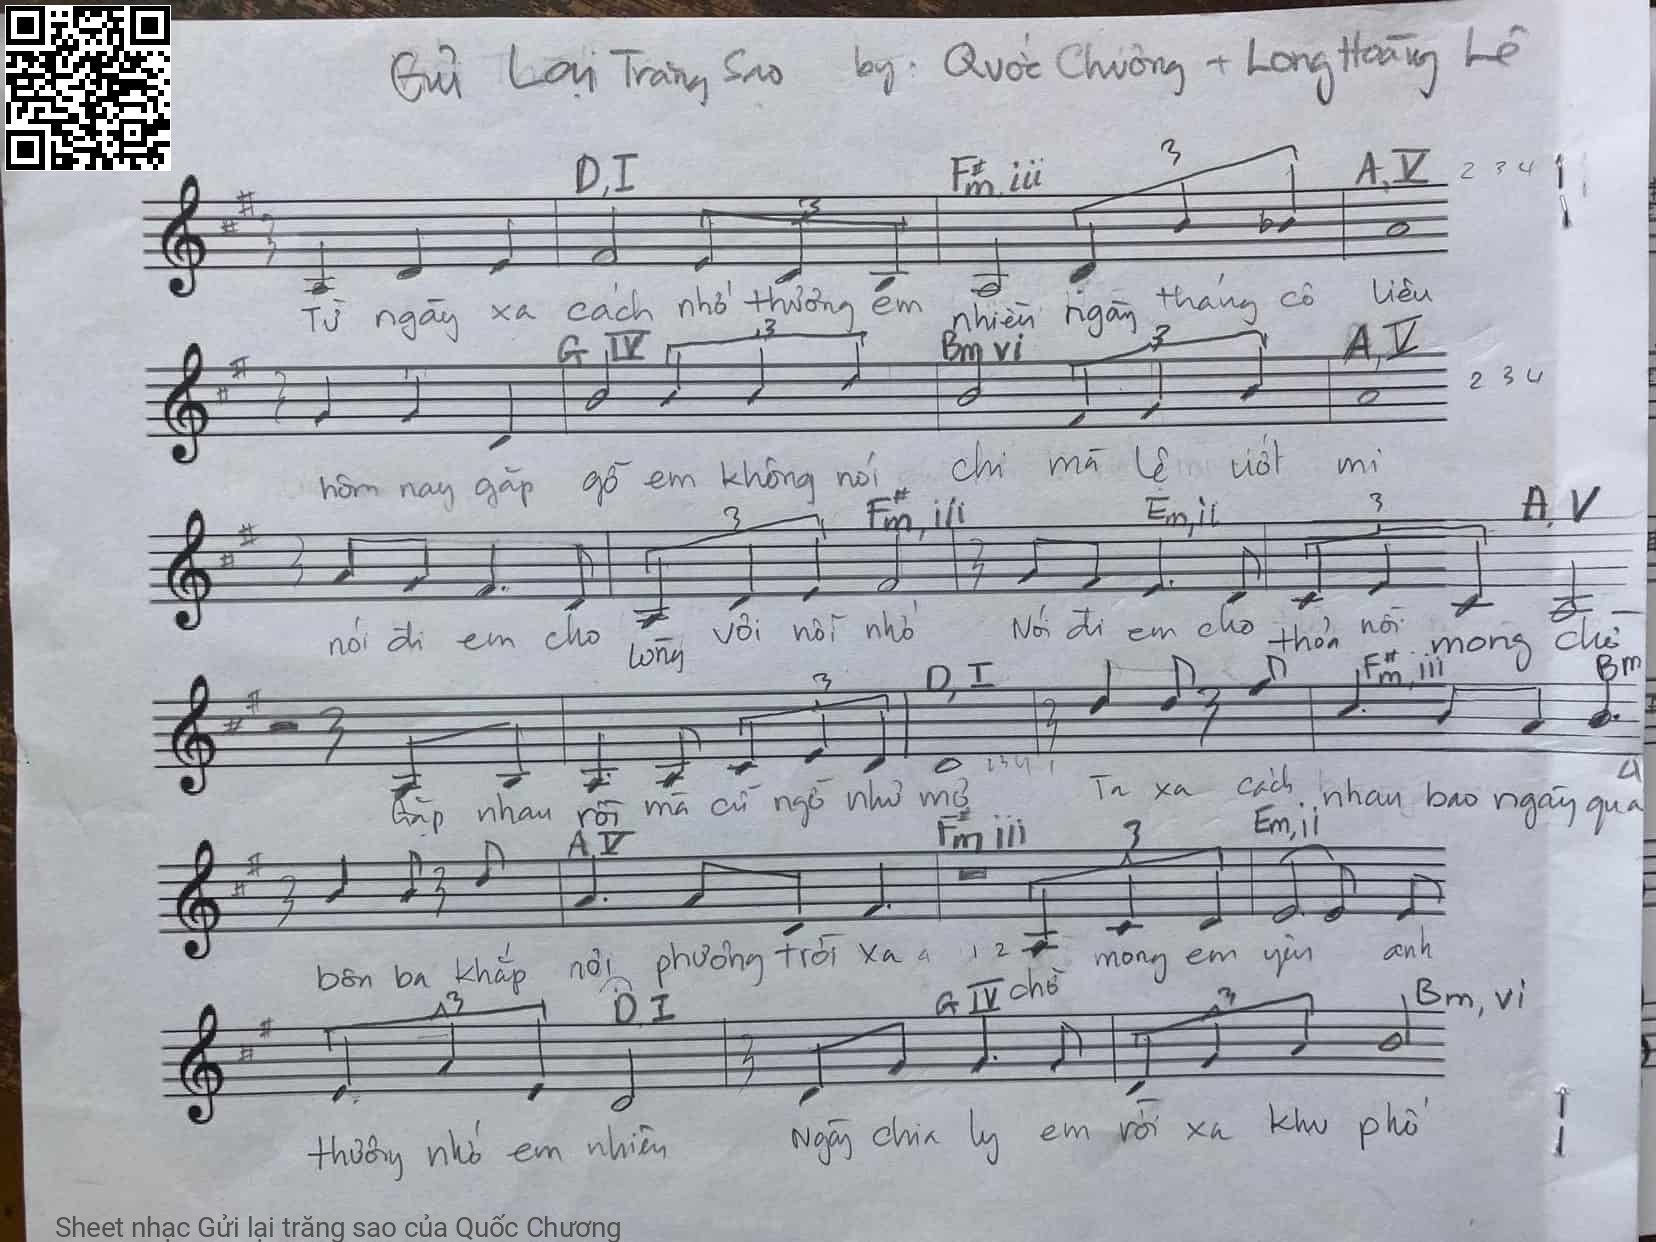 Gửi Lại Trăng Sao by: Quốc Chương + Long Hoàng Lê
D, I F#m, iii 3 A, V 2 3 4
3
Từ ngày xa cách nhớ thương em nhiều ngày tháng cô liêu
G IV 3 Bm vi 3 A, V 2 3 4
hôm nay gặp gỡ em không nói chi mà lệ ướt mi
3 F#m, iii Em, ii 3 A, V
nói đi em cho lòng vơi nỗi nhớ Nói đi em cho thỏa nỗi mong chờ
3 D, I F#m, iii Bm
Gặp nhau rồi mà cứ ngỡ như mơ Ta xa cách nhau bao ngày qua
A, V F#m iii 3 Em, ii
bôn ba khắp nơi phương trời xa a 1 2 chờ mong em yên anh
3 D I G IV 3 Bm, vi
thương nhớ em nhiều Ngày chia ly em rời xa khu phố
Sheet nhạc Gửi lại trăng sao của Quốc Chương